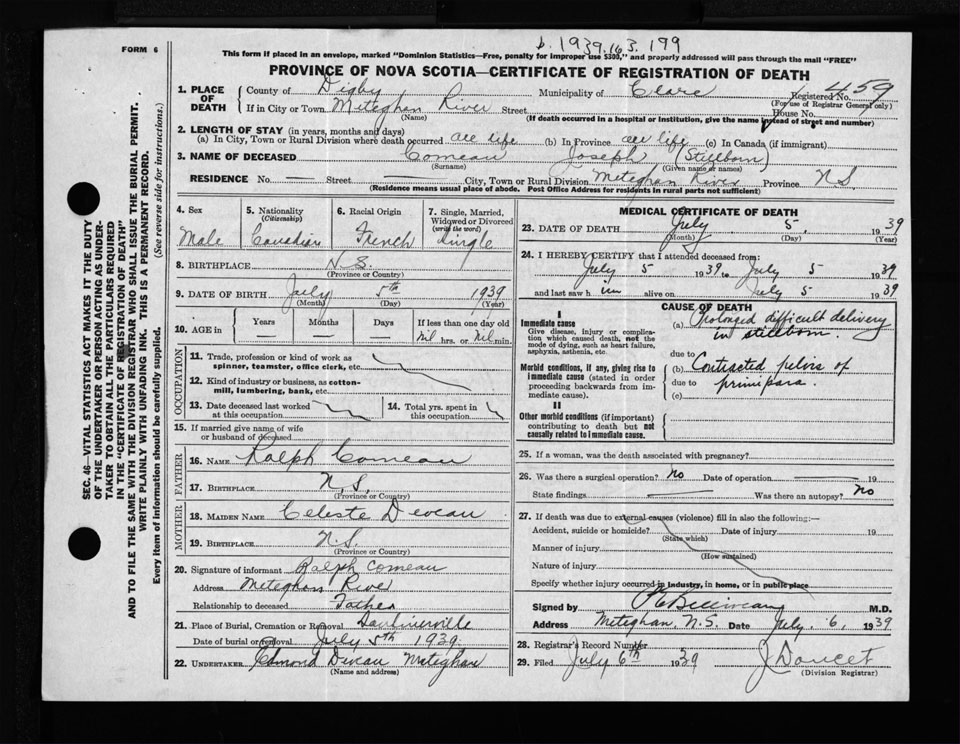 b. 1939.163.199
FORM 6
This form if placed in an envelope, marked "Dominion Statistics—Free, penalty for improper use $300," and properly addressed will pass through the mail "FREE"
PROVINCE OF NOVA SCOTIA—CERTIFICATE OF REGISTRATION OF DEATH
SEC. 46—VITAL STATISTICS ACT MAKES IT THE DUTY
OF THE UNDERTAKER OR PERSON ACTING AS UNDER-
TAKER TO OBTAIN ALL THE PARTICULARS REQUIRED
IN THE "CERTIFICATE OF REGISTRATION OF DEATH"
AND TO FILE THE SAME WITH THE DIVISION REGISTRAR WHO SHALL ISSUE THE BURIAL PERMIT.
WRITE PLAINLY WITH UNFADING INK. THIS IS A PERMANENT RECORD.
Every item of information should be carefully supplied. (See reverse side for instructions.)
1. PLACE OF DEATH
County of Digby Municipality of Clare Registered No. 459
(For use of Registrar General only)
If in City or Town Meteghan River Street House No.
(Name) (If death occurred in a hospital or Institution, give the name instead of street and number)
2. LENGTH OF STAY (in years, months and days)
(a) In City, Town or Rural Division where death occurred all life (b) In Province all life (c) In Canada (if immigrant)
3. NAME OF DECEASED Comeau Joseph (Stillborn)
(Surname) (Given name or names)
RESIDENCE No. — Street — City, Town or Rural Division Meteghan River Province N S
(Residence means usual place of abode. Post Office Address for residents in rural parts not sufficient)
4. Sex
Male
5. Nationality
(Citizenship)
Canadian
6. Racial Origin
French
7. Single, Married,
Widowed or Divorced
(write the word)
Single
8. BIRTHPLACE N. S.
(Province or Country)
9. DATE OF BIRTH July 5th 1939
(Month) (Day) (Year)
10. AGE in
Years Months Days If less than one day old
— — — Nil hrs. or Nil min.
OCCUPATION
11. Trade, profession or kind of work as
spinner, teamster, office clerk, etc.
12. Kind of industry or business, as cotton-
mill, lumbering, bank, etc.
13. Date deceased last worked
at this occupation
14. Total yrs. spent in
this occupation
15. If married give name of wife
or husband of deceased
FATHER
16. NAME Ralph Comeau
17. BIRTHPLACE N. S.
(Province or Country)
MOTHER
18. MAIDEN NAME Celeste Deveau
19. BIRTHPLACE N. S.
(Province or Country)
20. Signature of informant Ralph Comeau
Address Meteghan River
Relationship to deceased Father
21. Place of Burial, Cremation or Removal Saulnierville
Date of burial or removal July 5th 1939.
22. UNDERTAKER Edmond Deveau Meteghan
(Name and address)
MEDICAL CERTIFICATE OF DEATH
23. DATE OF DEATH July 5, 1939
(Month) (Day) (Year)
24. I HEREBY CERTIFY that I attended deceased from:
July 5 1939, to July 5 1939
and last saw him alive on July 5 1939
CAUSE OF DEATH
I
Immediate cause
Give disease, injury or complica-
tion which caused death, not the
mode of dying, such as heart failure,
asphyxia, asthenia, etc.
(a) Prolonged difficult delivery
in stillborn.
due to
Morbid conditions, if any, giving rise to
immediate cause (stated in order
proceeding backwards from im-
mediate cause).
(b) Contracted pelvis of
due to primipara.
(c)
II
Other morbid conditions (if important)
contributing to death but not
causally related to immediate cause.
25. If a woman, was the death associated with pregnancy?
26. Was there a surgical operation? No Date of operation — 19
State findings — Was there an autopsy? No
27. If death was due to external causes (violence) fill in also the following:—
Accident, suicide or homicide? Date of injury 19
(State which)
Manner of injury
(How sustained)
Nature of injury
Specify whether injury occurred in industry, in home, or in public place
Signed by M.D.
Address Meteghan, N.S. Date July, 6, 1939
28. Registrar's Record Number
29. Filed July 6th 1939 J Doucet
(Division Registrar)